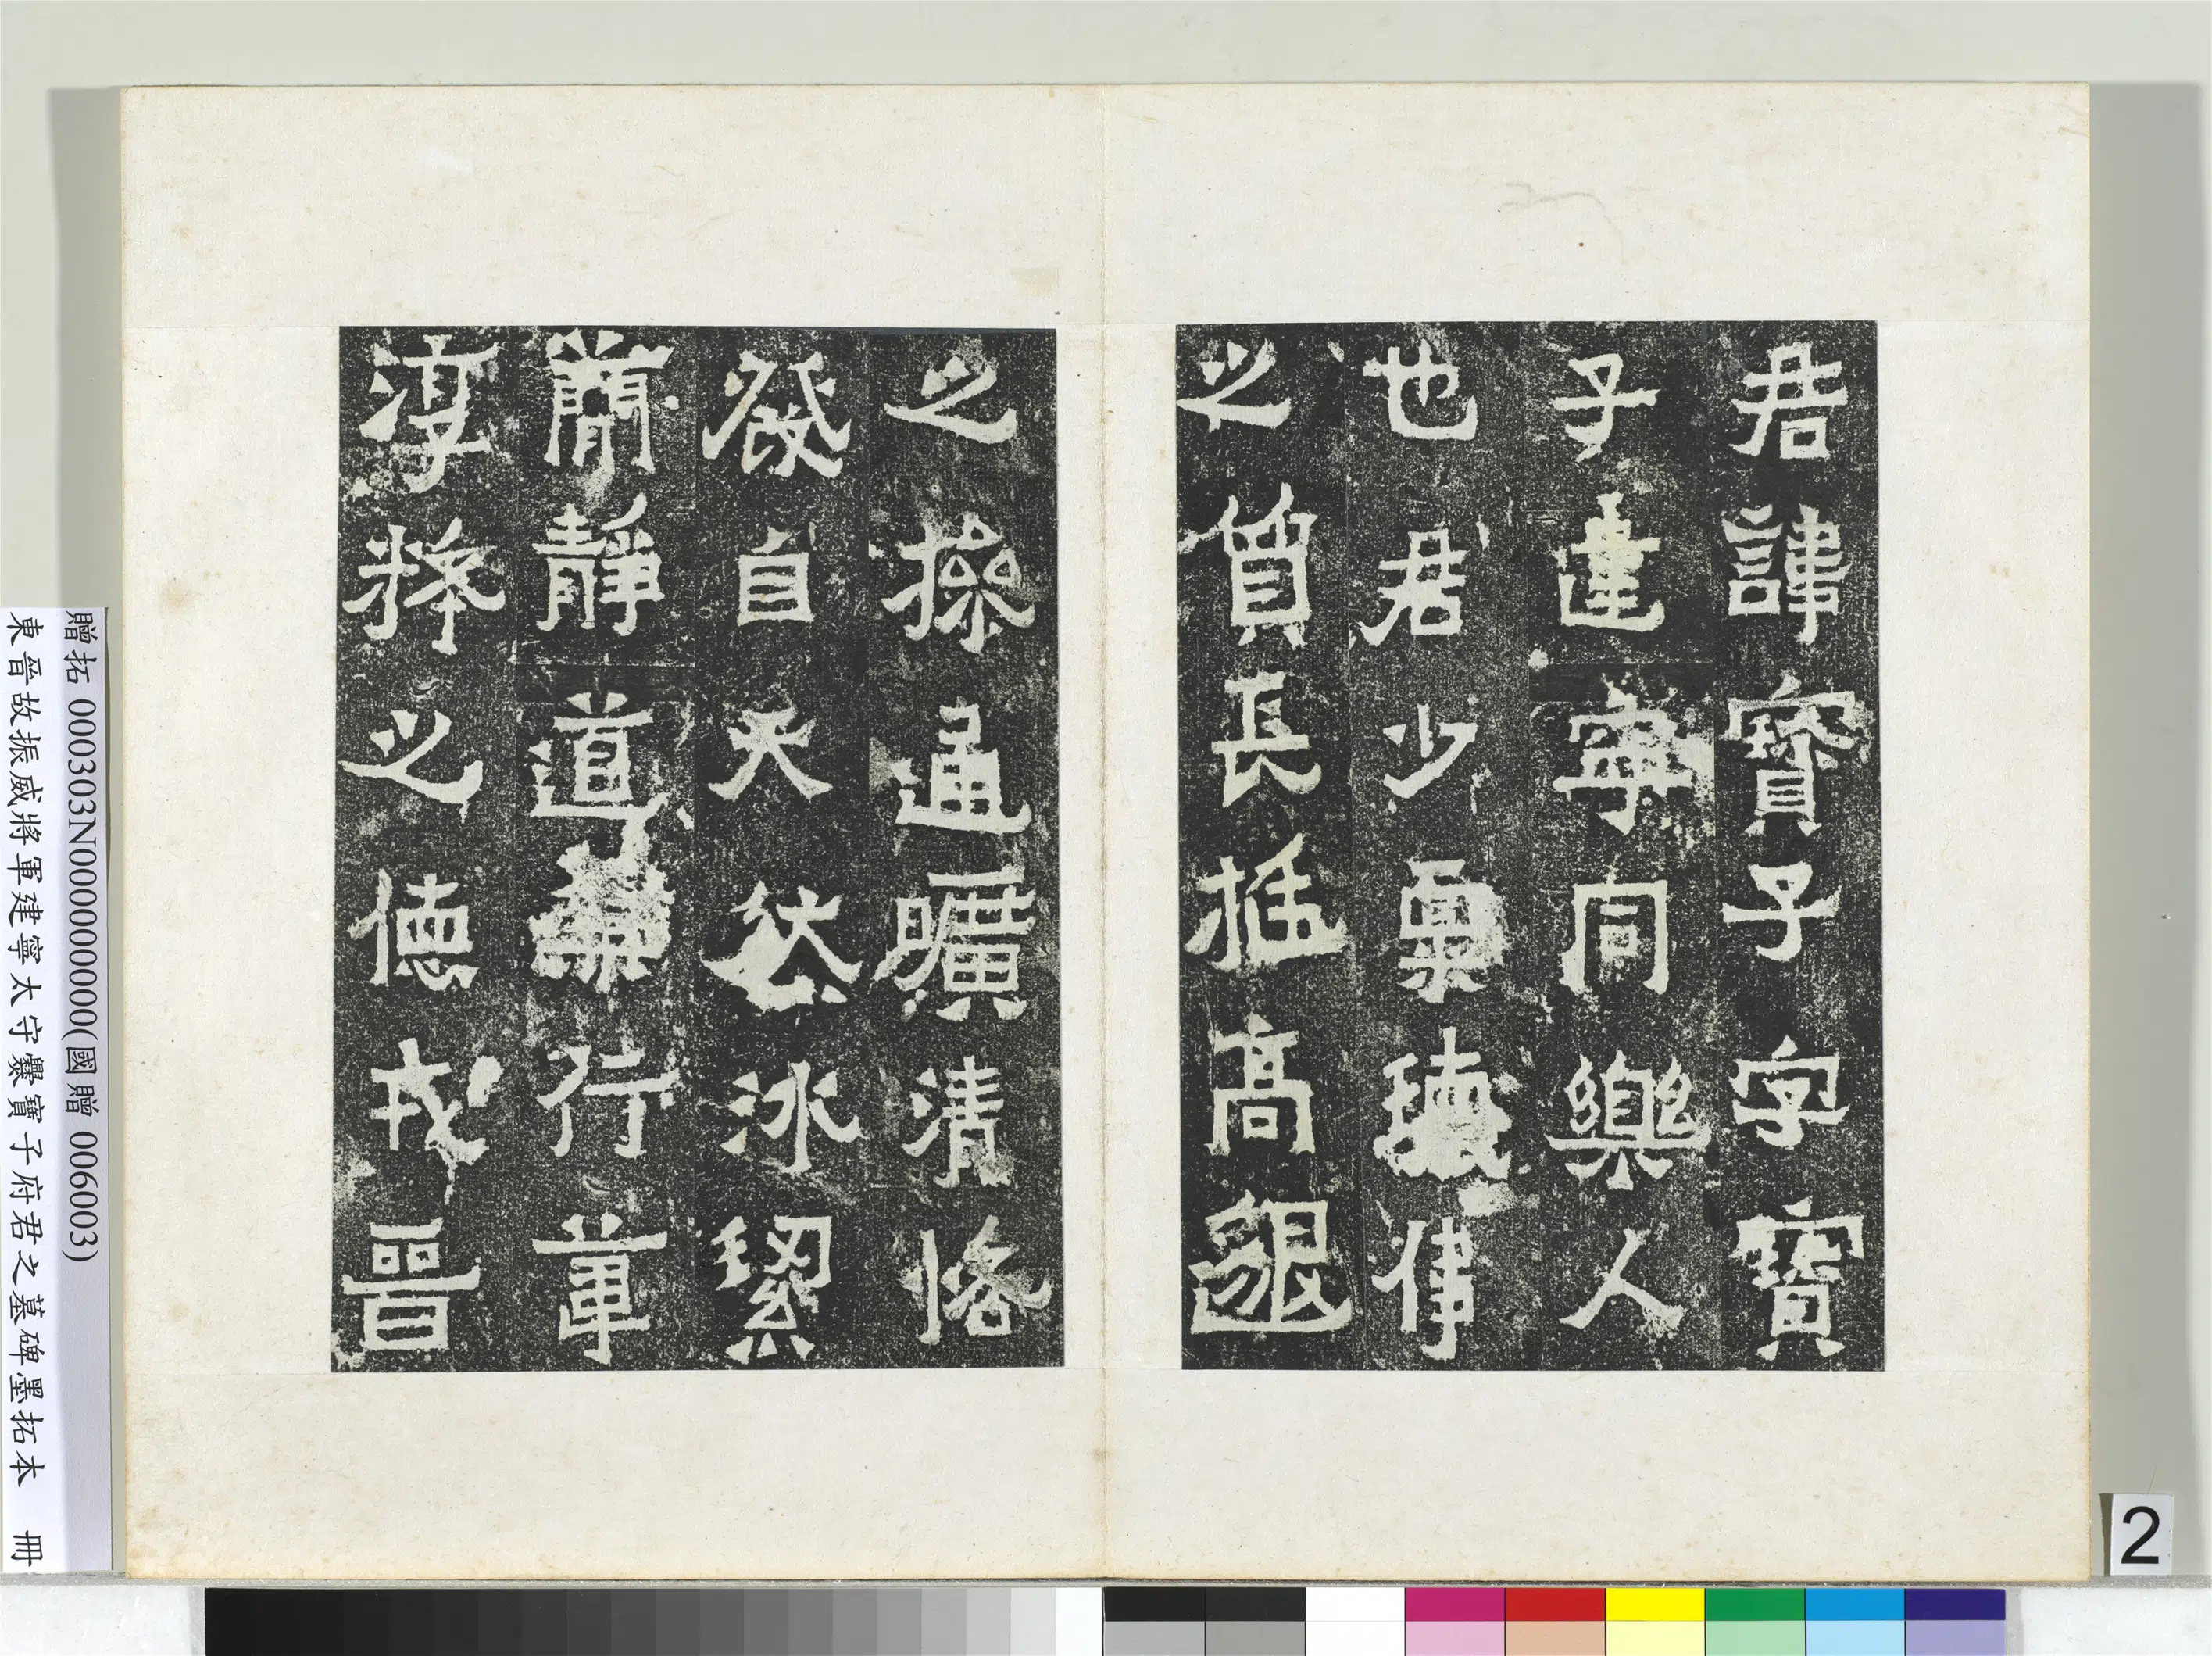 君諱寶子字寶
子建寧同樂人
也君少稟瓌偉
之質長挺高邈
之操通曠清恪
發自天然冰絜
蕳靜道兼行葦
淳粹之德戎晉
贈拓 000303N000000000(國贈 006003)
東晉故振威將軍建寧太守爨寶子府君之墓碑墨拓本 冊
2